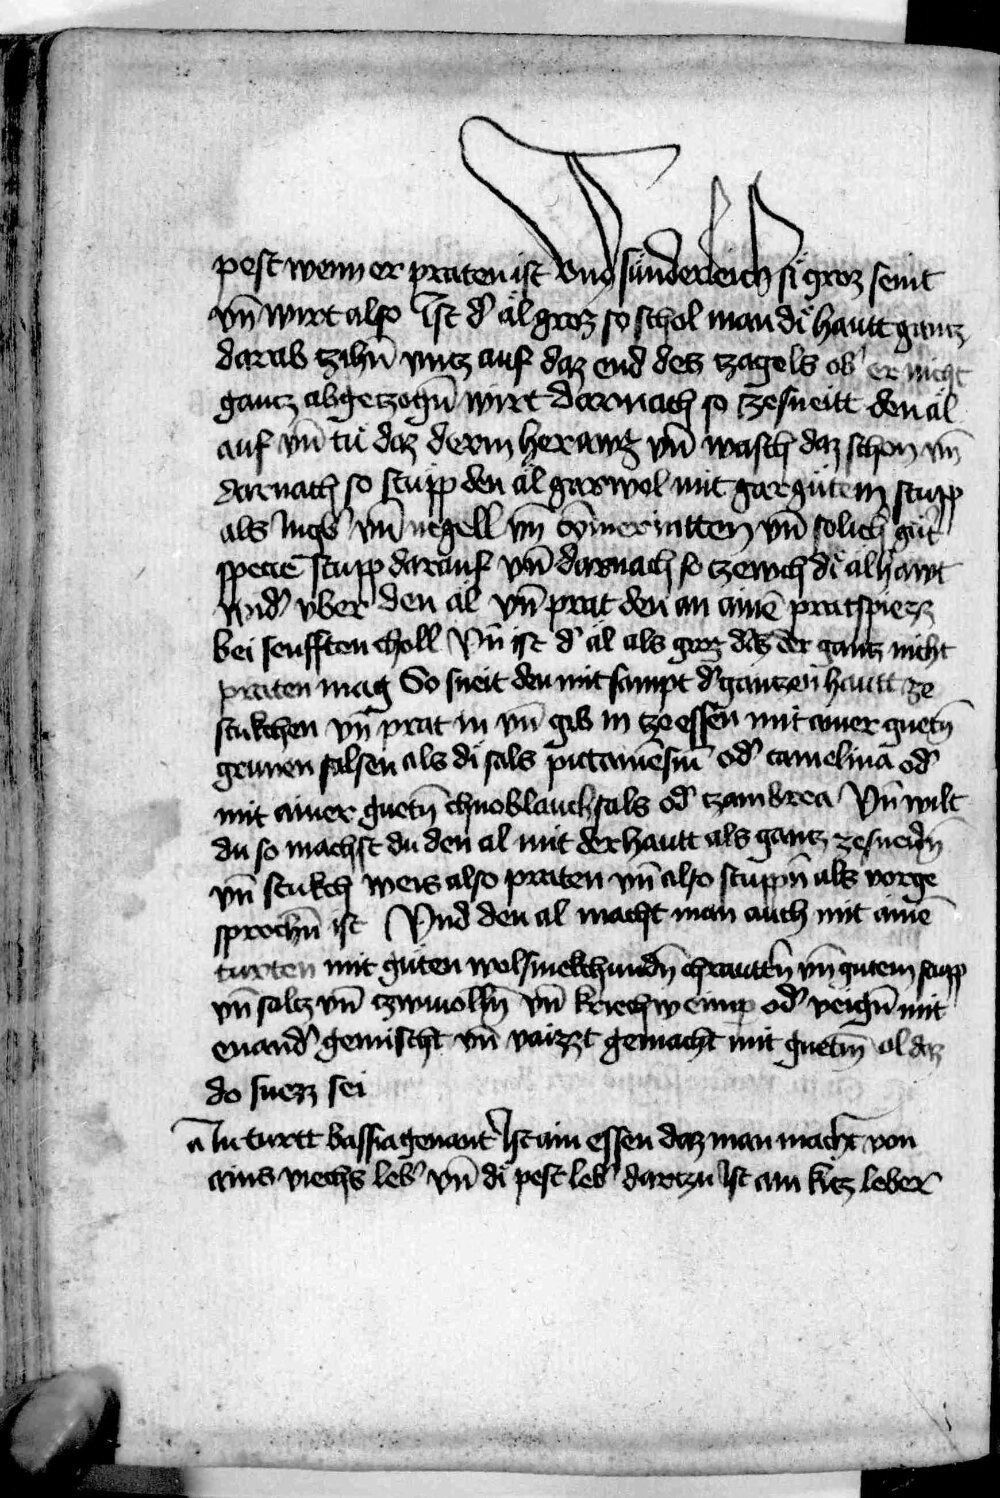 pest wenn er praten ist vnd sünderleich si groz seint
vn̄ wirt also Ist d' äl groz so schol man di hautt gantz
darab tzihn̄ vntz auf daz end dez tzagels ob er nicht
gantz abgetzogn̄ wirt Darnach so tzesneitt den äl
auf vn̄ tü daz derm herawz vn̄ wasch daz schon vn̄
darnach so stupp den äl gar wol mit gar gütem stupp
als Ingb' vn̄ negell vn̄ vn̄ solich güt
specie stupp darauf vn̄ darnach so tzewch di alhawt
wid' vber den al vn̄ prat den an ainē pratspiezz
bei senfften choll Vn̄ ist d' äl als groz daz der gantz nicht
praten mag So sneit den mitsampt d' gantzen hautt ze
stukchen vn̄ prat in vn̄ gib in tze essen mit ainer guetn̄
grunen salsen als di sals od' camelina od'
mit ainer guetn̄ chnoblauchsals od' tzambrea Vn̄ wilt
du so machst du den al mit der hautt als gantz zesneidn̄
vn̄ stukch weis also praten vn̄ also stuppn̄ als vorge
sprochn̄ ist Vnd den al macht man auch mit ainē
turten mit güten wolsmekchundn̄ chrauttn̄ vn̄ gutem stupp
vn̄ saltz vn̄ tzwiuolln̄ vn̄ kriechweinnp od' veign̄ mit
enand' gemischt vn̄ vaizzt gemacht mit guetm̄ ol daz
do suezz sei
Ain turtt bassia genant Ist ain essen daz man macht von
ains viechs leb' vn̄ di pest leb' dartzu Ist ain kitz leber